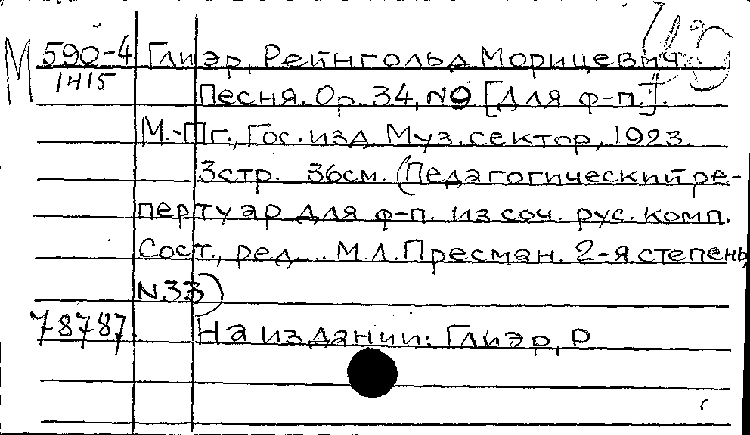 М 590-4 Глиэр, Рейнгольд Морицевич.
1415
Песня. Op. 34, N9 [Для ф-п.].
М.-Пг., Гос. изд. Муз. сектор, 1923.
3стр. 36см. (Педагогический ре-
пертуар для ф-п. из соч. рус. комп.
Сост., ред... М.Л.Пресман. 2-я степень
N.33)
78787. На издании: Глиэр, Р